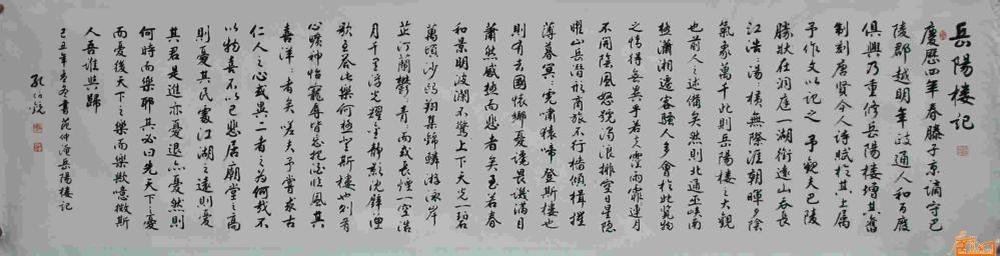 岳陽樓記
慶歷四年春滕子京謫守巴
陵郡越明年政通人和百廢
俱興乃重修岳陽樓增其舊
制刻唐賢今人詩賦於其上屬
予作文以記之予觀夫巴陵
勝狀在洞庭一湖銜遠山吞長
江浩浩湯湯橫無際涯朝暉夕陰
氣象萬千此則岳陽樓之大觀
也前人之述備矣然則北通巫峽南
極瀟湘遷客騷人多會於此覽物
之情得無異乎若夫霪雨霏霏連月
不開陰風怒號濁浪排空日星隱
曜山岳潛形商旅不行檣傾楫摧
薄暮冥冥虎嘯猿啼登斯樓也
則有去國懷鄉憂讒畏譏滿目
蕭然感極而悲者矣至若春
和景明波瀾不驚上下天光一碧
萬頃沙鷗翔集錦鱗游泳岸
芷汀蘭鬱鬱青青而或長煙一空皓
月千里浮光耀金靜影沉璧漁
歌互答此樂何極登斯樓也則有
心曠神怡寵辱皆忘把酒臨風其
喜洋洋者矣嗟夫予嘗求古
仁人之心或異二者之為何哉不
以物喜不以己悲居廟堂之高
則憂其民處江湖之遠則憂
其君是進亦憂退亦憂然則
何時而樂耶其必曰先天下之憂
而憂後天下之樂而樂歟噫微斯
人吾誰與歸
己丑年 書范仲淹岳陽樓記